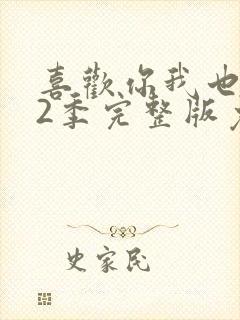 喜歡你我也
2季完整版免
史家民